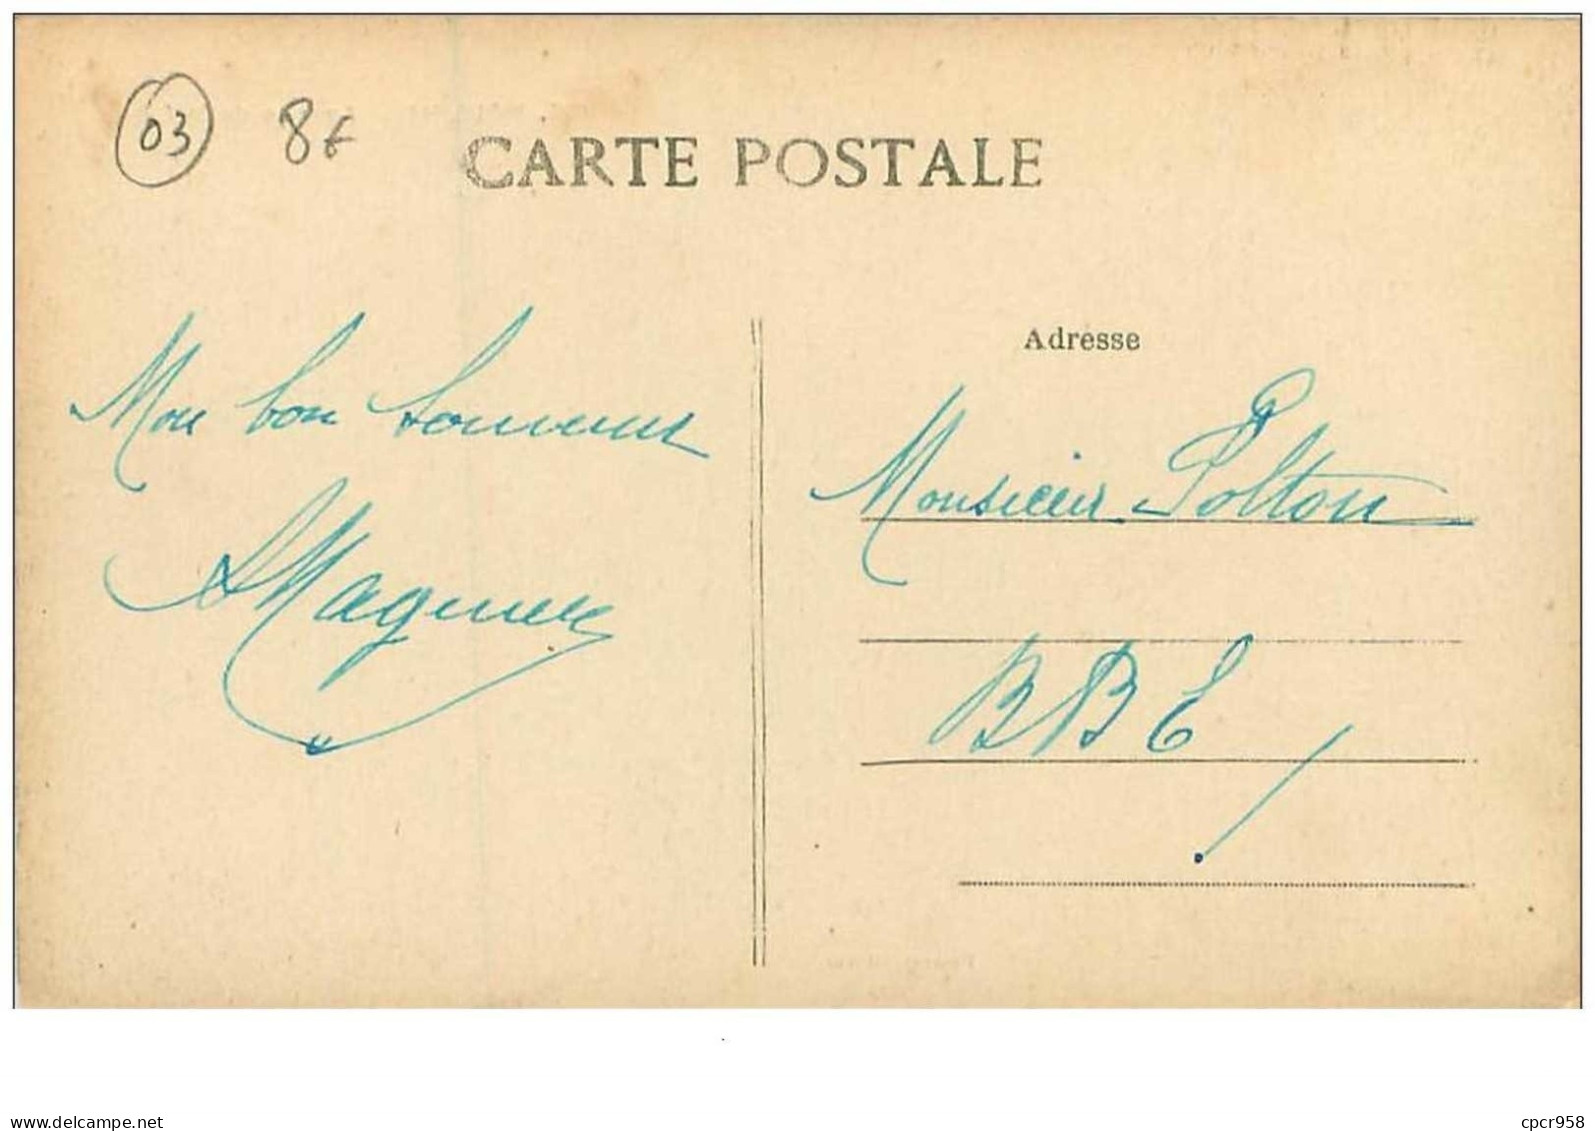 03 8€
CARTE POSTALE
Adresse
Mon bon souvenir
Monsieur Polton
BBE
www.delcampe.net
cpcr958